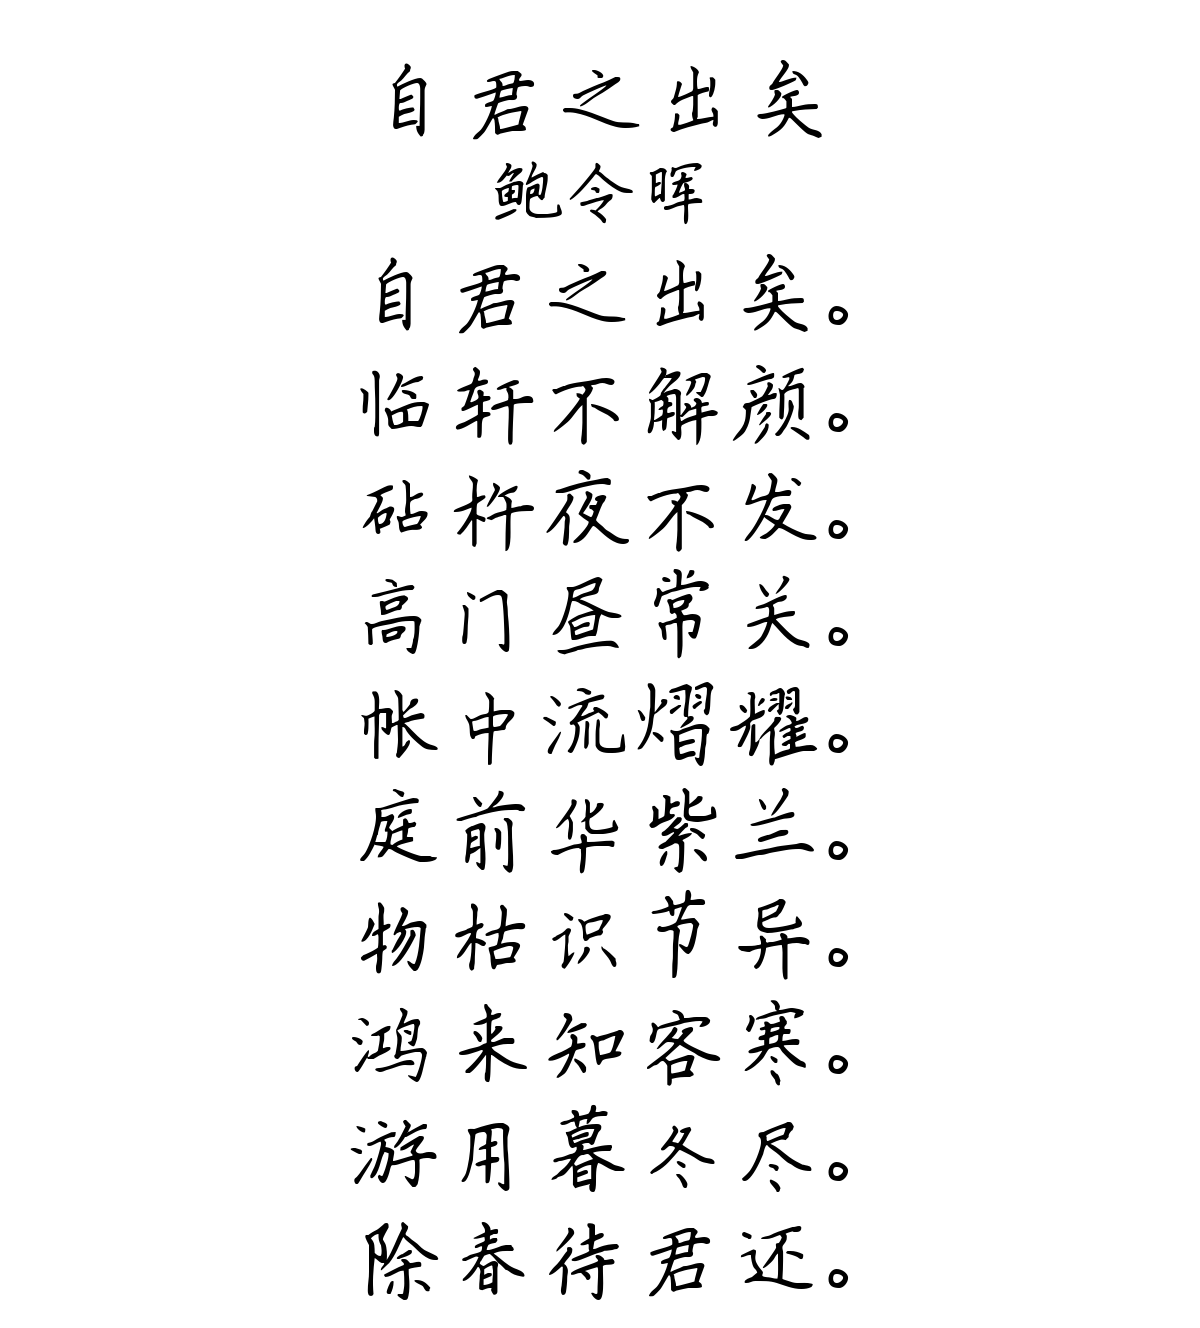 自君之出矣
鲍令晖
自君之出矣。
临轩不解颜。
砧杵夜不发。
高门昼常关。
帐中流熠耀。
庭前华紫兰。
物枯识节异。
鸿来知客寒。
游用暮冬尽。
除春待君还。